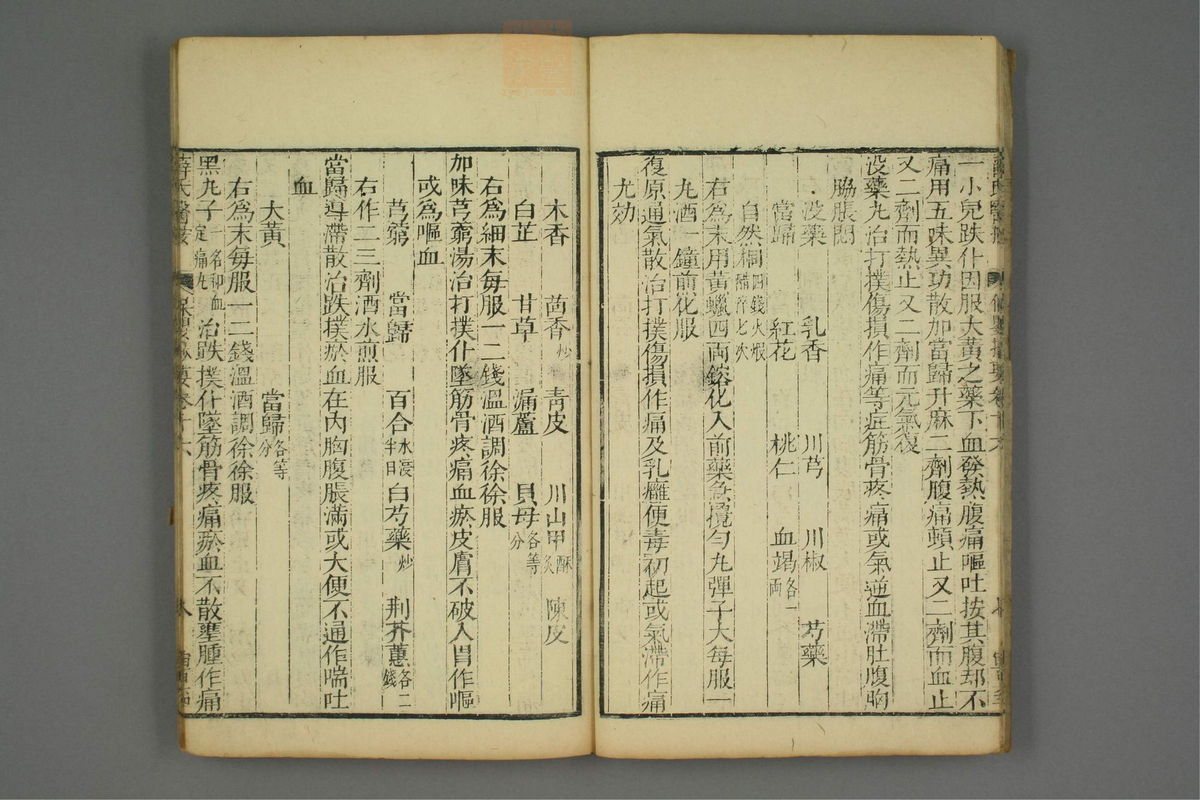 一小兒跌仆因服大黃之藥下血發熱腹痛嘔吐按其腹却不
痛用五味異功散加當歸升麻二劑腹痛頓止又二劑而血止
又二劑而熱止又二劑而元氣復
没藥丸治打撲傷損作痛等症筋骨疼痛或氣逆血滯肚腹胸
脇脹悶
没藥 乳香 川芎 川椒 芍藥
當歸 紅花 桃仁 血竭各一兩
自然銅四錢火煅醋淬七次
右爲末用黃蠟四兩鎔化入前藥急攪勻丸彈子大每服一
丸酒一鐘煎化服
復原通氣散治打撲傷損作痛及乳癰便毒初起或氣滯作痛
尤効
木香 茴香炒 青皮 川山甲酥炙 陳皮
白芷 甘草 漏蘆 貝母各等分
右爲細末每服一二錢溫酒調徐徐服
加味芎藭湯治打撲仆墜筋骨疼痛血瘀皮膚不破入胃作嘔
或爲嘔血
芎藭 當歸 百合水浸半日 白芍藥炒 荆芥蕙各二錢
右作二三劑酒水煎服
當歸導滯散治跌撲瘀血在内胸腹脹滿或大便不通作喘吐
血
大黃 當歸各等分
右爲末每服一二錢溫酒調徐徐服
黑丸子一名和血定痛丸 治跌撲仆墜筋骨疼痛瘀血不散壅腫作痛
薛氏醫案 保嬰撮要卷十六